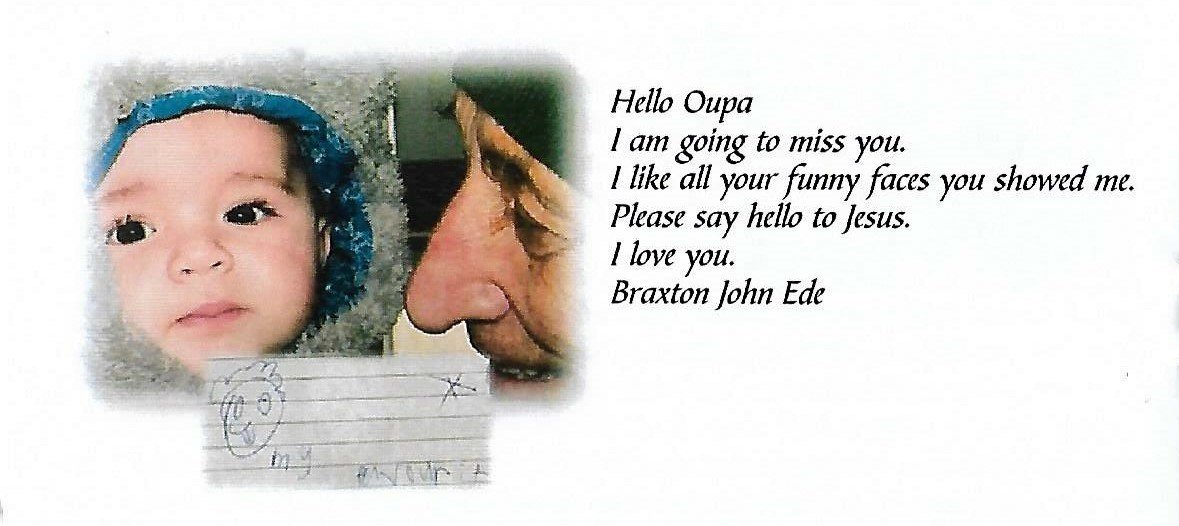 Hello Oupa
I am going to miss you.
I like all your funny faces you showed me.
Please say hello to Jesus.
I love you.
Braxton John Ede
my